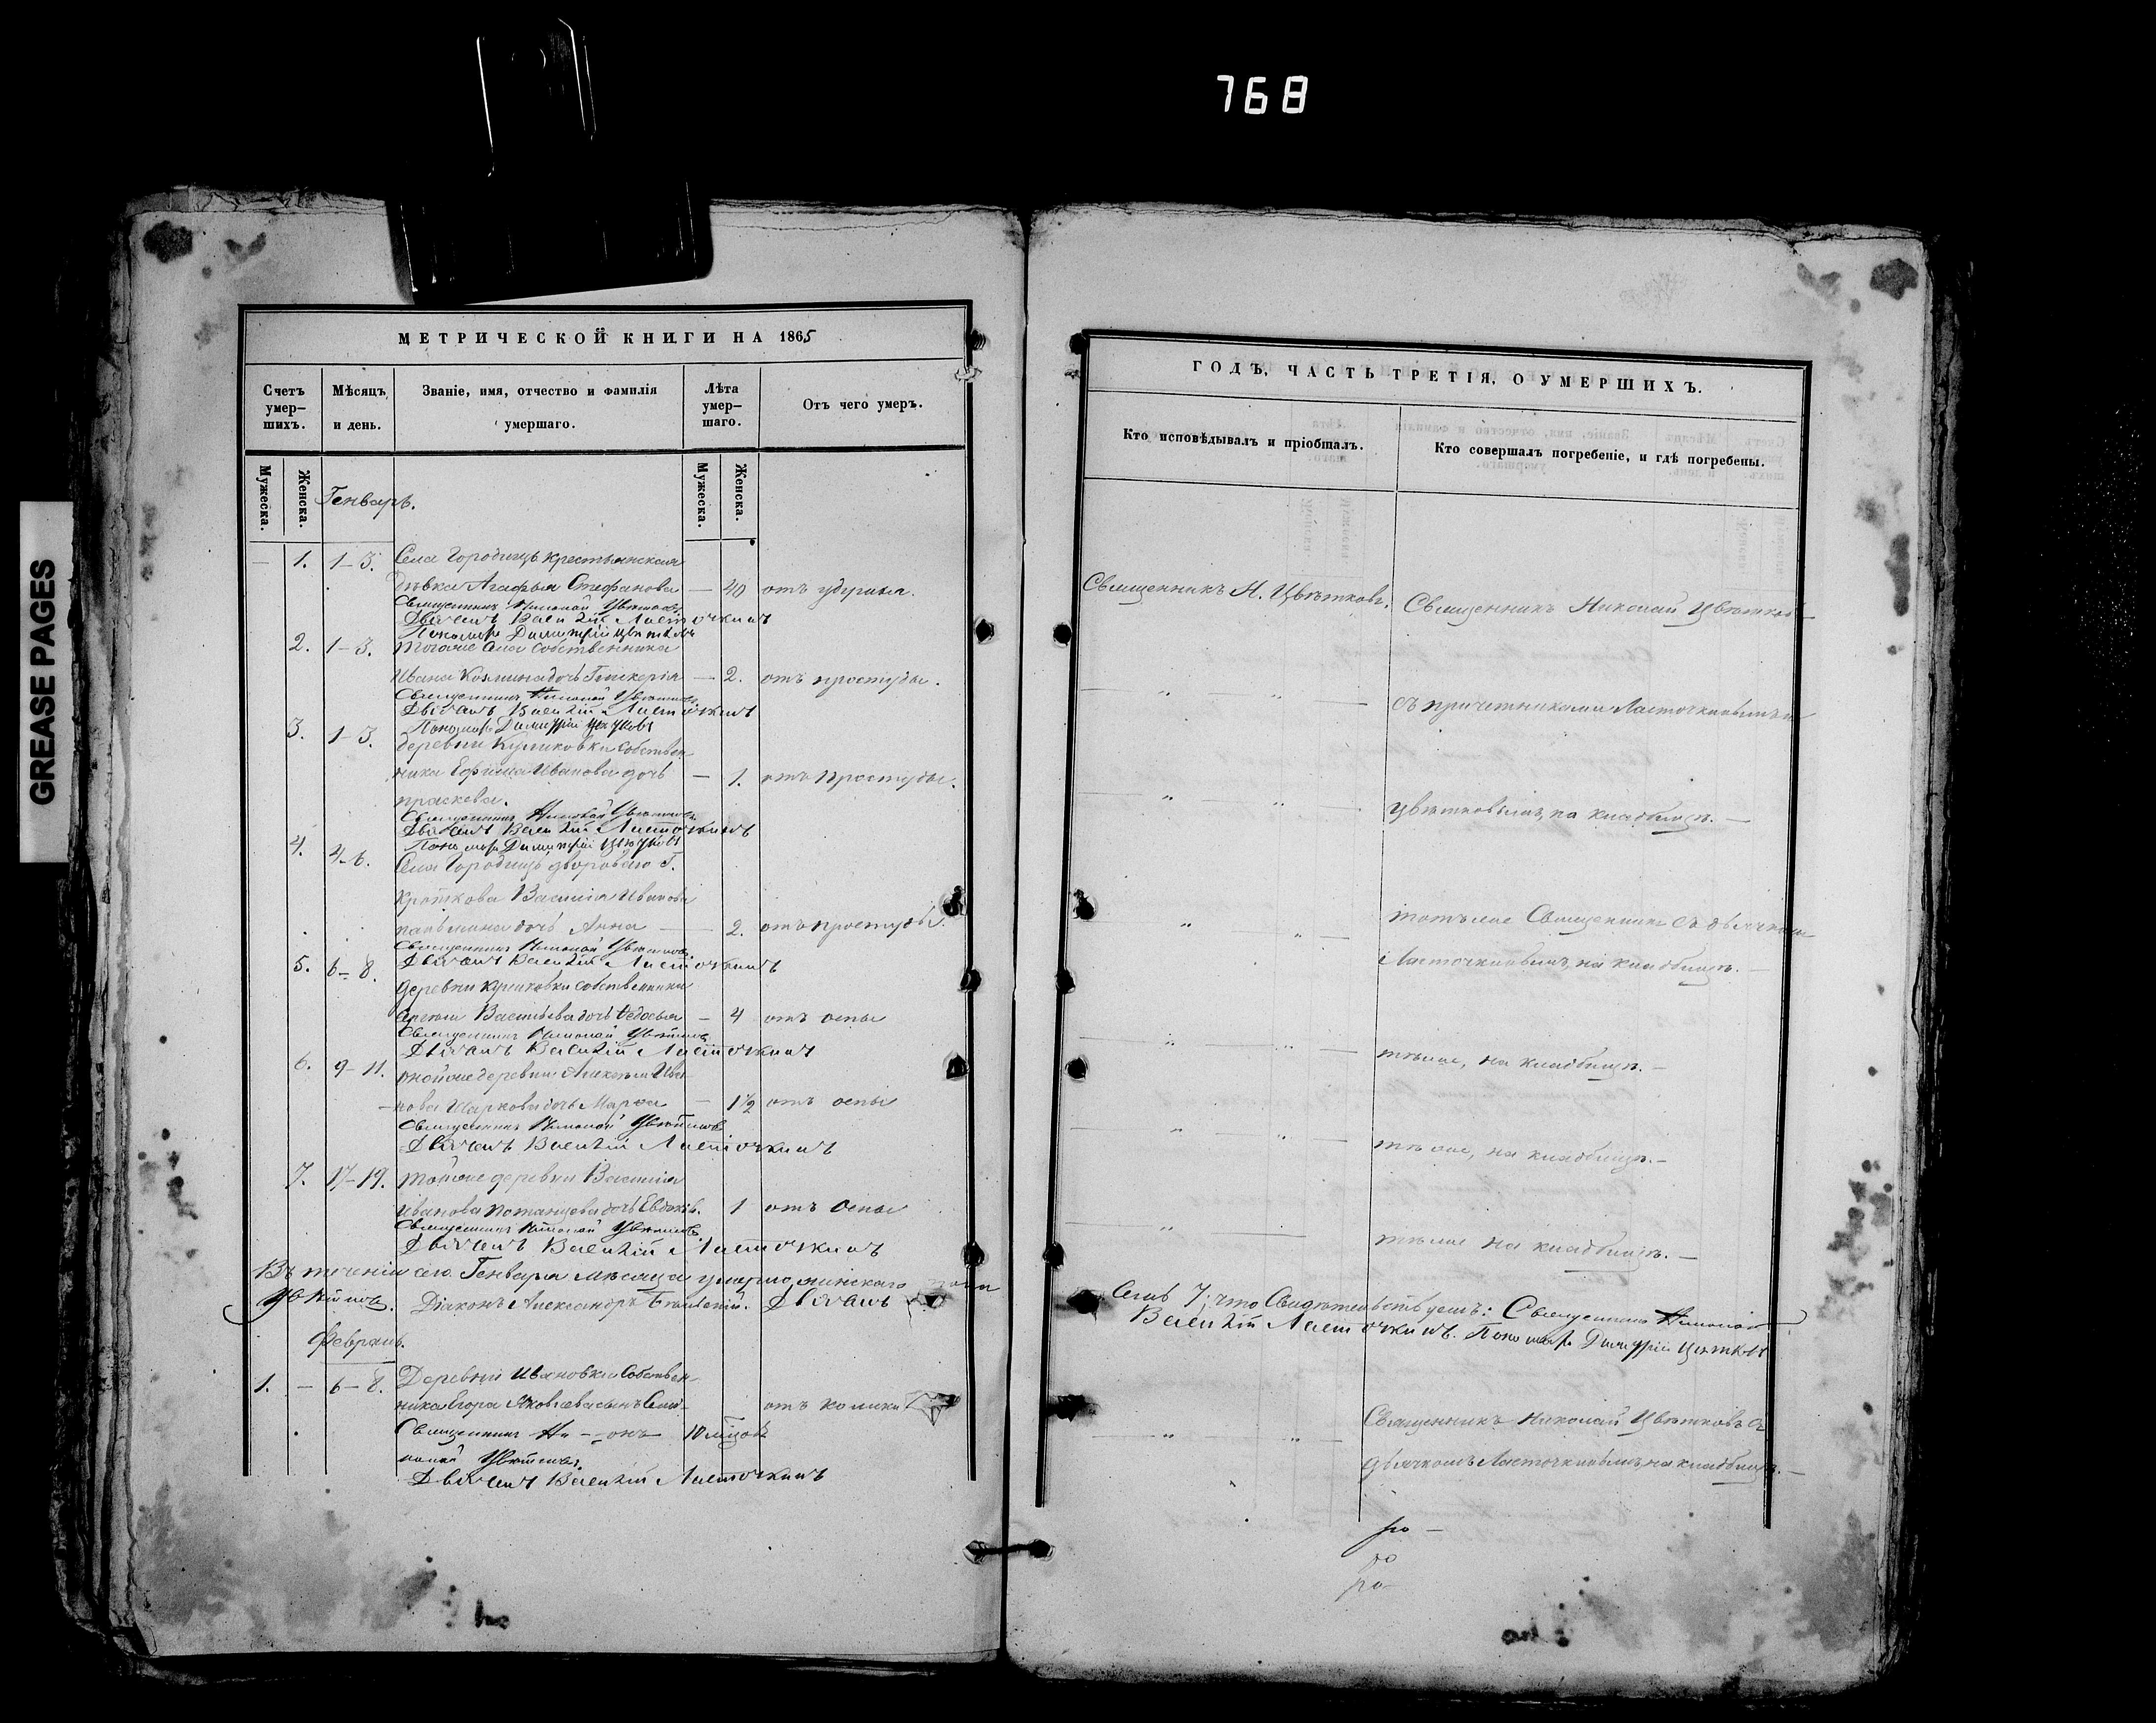 768
GREASE PAGES
МЕТРИЧЕСКОЙ КНИГИ НА 1865
Счетъ умер–шихъ.
Мѣсяцъ и день.
Званіе, имя, отчество и фамилія умершаго.
Лѣта умер–шаго.
Отъ чего умеръ.
Мужеска.
Женска.
Мужеска.
Женска.
Генварь.
1. 1–3. Села Городищъ крестьянская
дѣвка Агафья Стефанова — 40 отъ удушья.
Священникъ Николай Цвѣтковъ
Дьячекъ Василій Ласточкинъ
Пономарь Димитрій Цвѣтковъ
2. 1–3. Тогоже села собственника
Ивана Козмина дочь Гликерія — 2. отъ простуды.
Священникъ Николай Цвѣтковъ
Дьячекъ Василій Ласточкинъ
Пономарь Димитрій Цвѣтковъ
3. 1–3. Деревни Куликовки собствен–
ника Ефима Иванова дочь — 1. отъ простуды.
праскева.
Священникъ Николай Цвѣтковъ
Дьячекъ Василій Ласточкинъ
Пономарь Димитрій Цвѣтковъ
4. 4–6. Села Городищъ двороваго Г.
Кроткова Василія Иванова
дочь Анна — 2. отъ простуды.
Священникъ Николай Цвѣтковъ
Дьячекъ Василій Ласточкинъ
5. 6–8. Деревни Куликовки собственника
Васильева дочь Ѳедосья — 4 отъ оспы
Священникъ Николай Цвѣтковъ
Дьячекъ Василій Ласточкинъ
6. 9–11. тойже деревни Алексѣя Ива–
нова Шаркова дочь Марѳа — 1½ отъ оспы
Священникъ Николай Цвѣтковъ
Дьячекъ Василій Ласточкинъ
7. 17–19. тойже деревни Василія
Иванова Потанцева дочь Евдокія. 1 отъ оспы
Священникъ Николай Цвѣтковъ
Дьячекъ Василій Ласточкинъ
Въ теченіи сего Генваря мѣсяца умерло женскаго пола
Цвѣтковъ. Діаконъ Александръ Дьячекъ
Февраль.
1. — 6–8. Деревни Ивановки собствен–
ника Егора Яковлева сынъ отъ колики
Священникъ Ни– 10
колай Цвѣтковъ.
Дьячекъ Василій Ласточкинъ
ГОДЪ, ЧАСТЬ ТРЕТІЯ, О УМЕРШИХЪ.
Кто исповѣдывалъ и пріобщалъ.
Кто совершалъ погребеніе, и гдѣ погребены.
Священникъ Н. Цвѣтковъ. Священникъ Николай Цвѣтковъ
съ причетниками Ласточкинымъ и
Цвѣтковымъ на кладбищѣ. —
тотъже Священникъ съ дьячкомъ
Ласточкинымъ, на кладбищѣ. —
тѣже, на кладбищѣ. —
тѣже, на кладбищѣ. —
тѣже на кладбищѣ. —
Семь 7; что Свидѣтельствуемъ: Священникъ Николай
Василій Ласточкинъ. Пономарь Димитрій Цвѣтковъ
Священникъ Николай Цвѣтковъ съ
дьячкомъ Ласточкинымъ на кладбищѣ. —